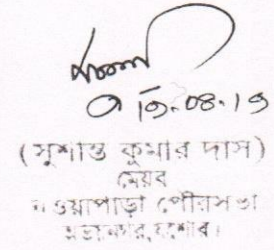 (সুশান্ত কুমার দাস)
মেয়র
নওয়াপাড়া পৌরসভা
অভয়নগর, যশোর।